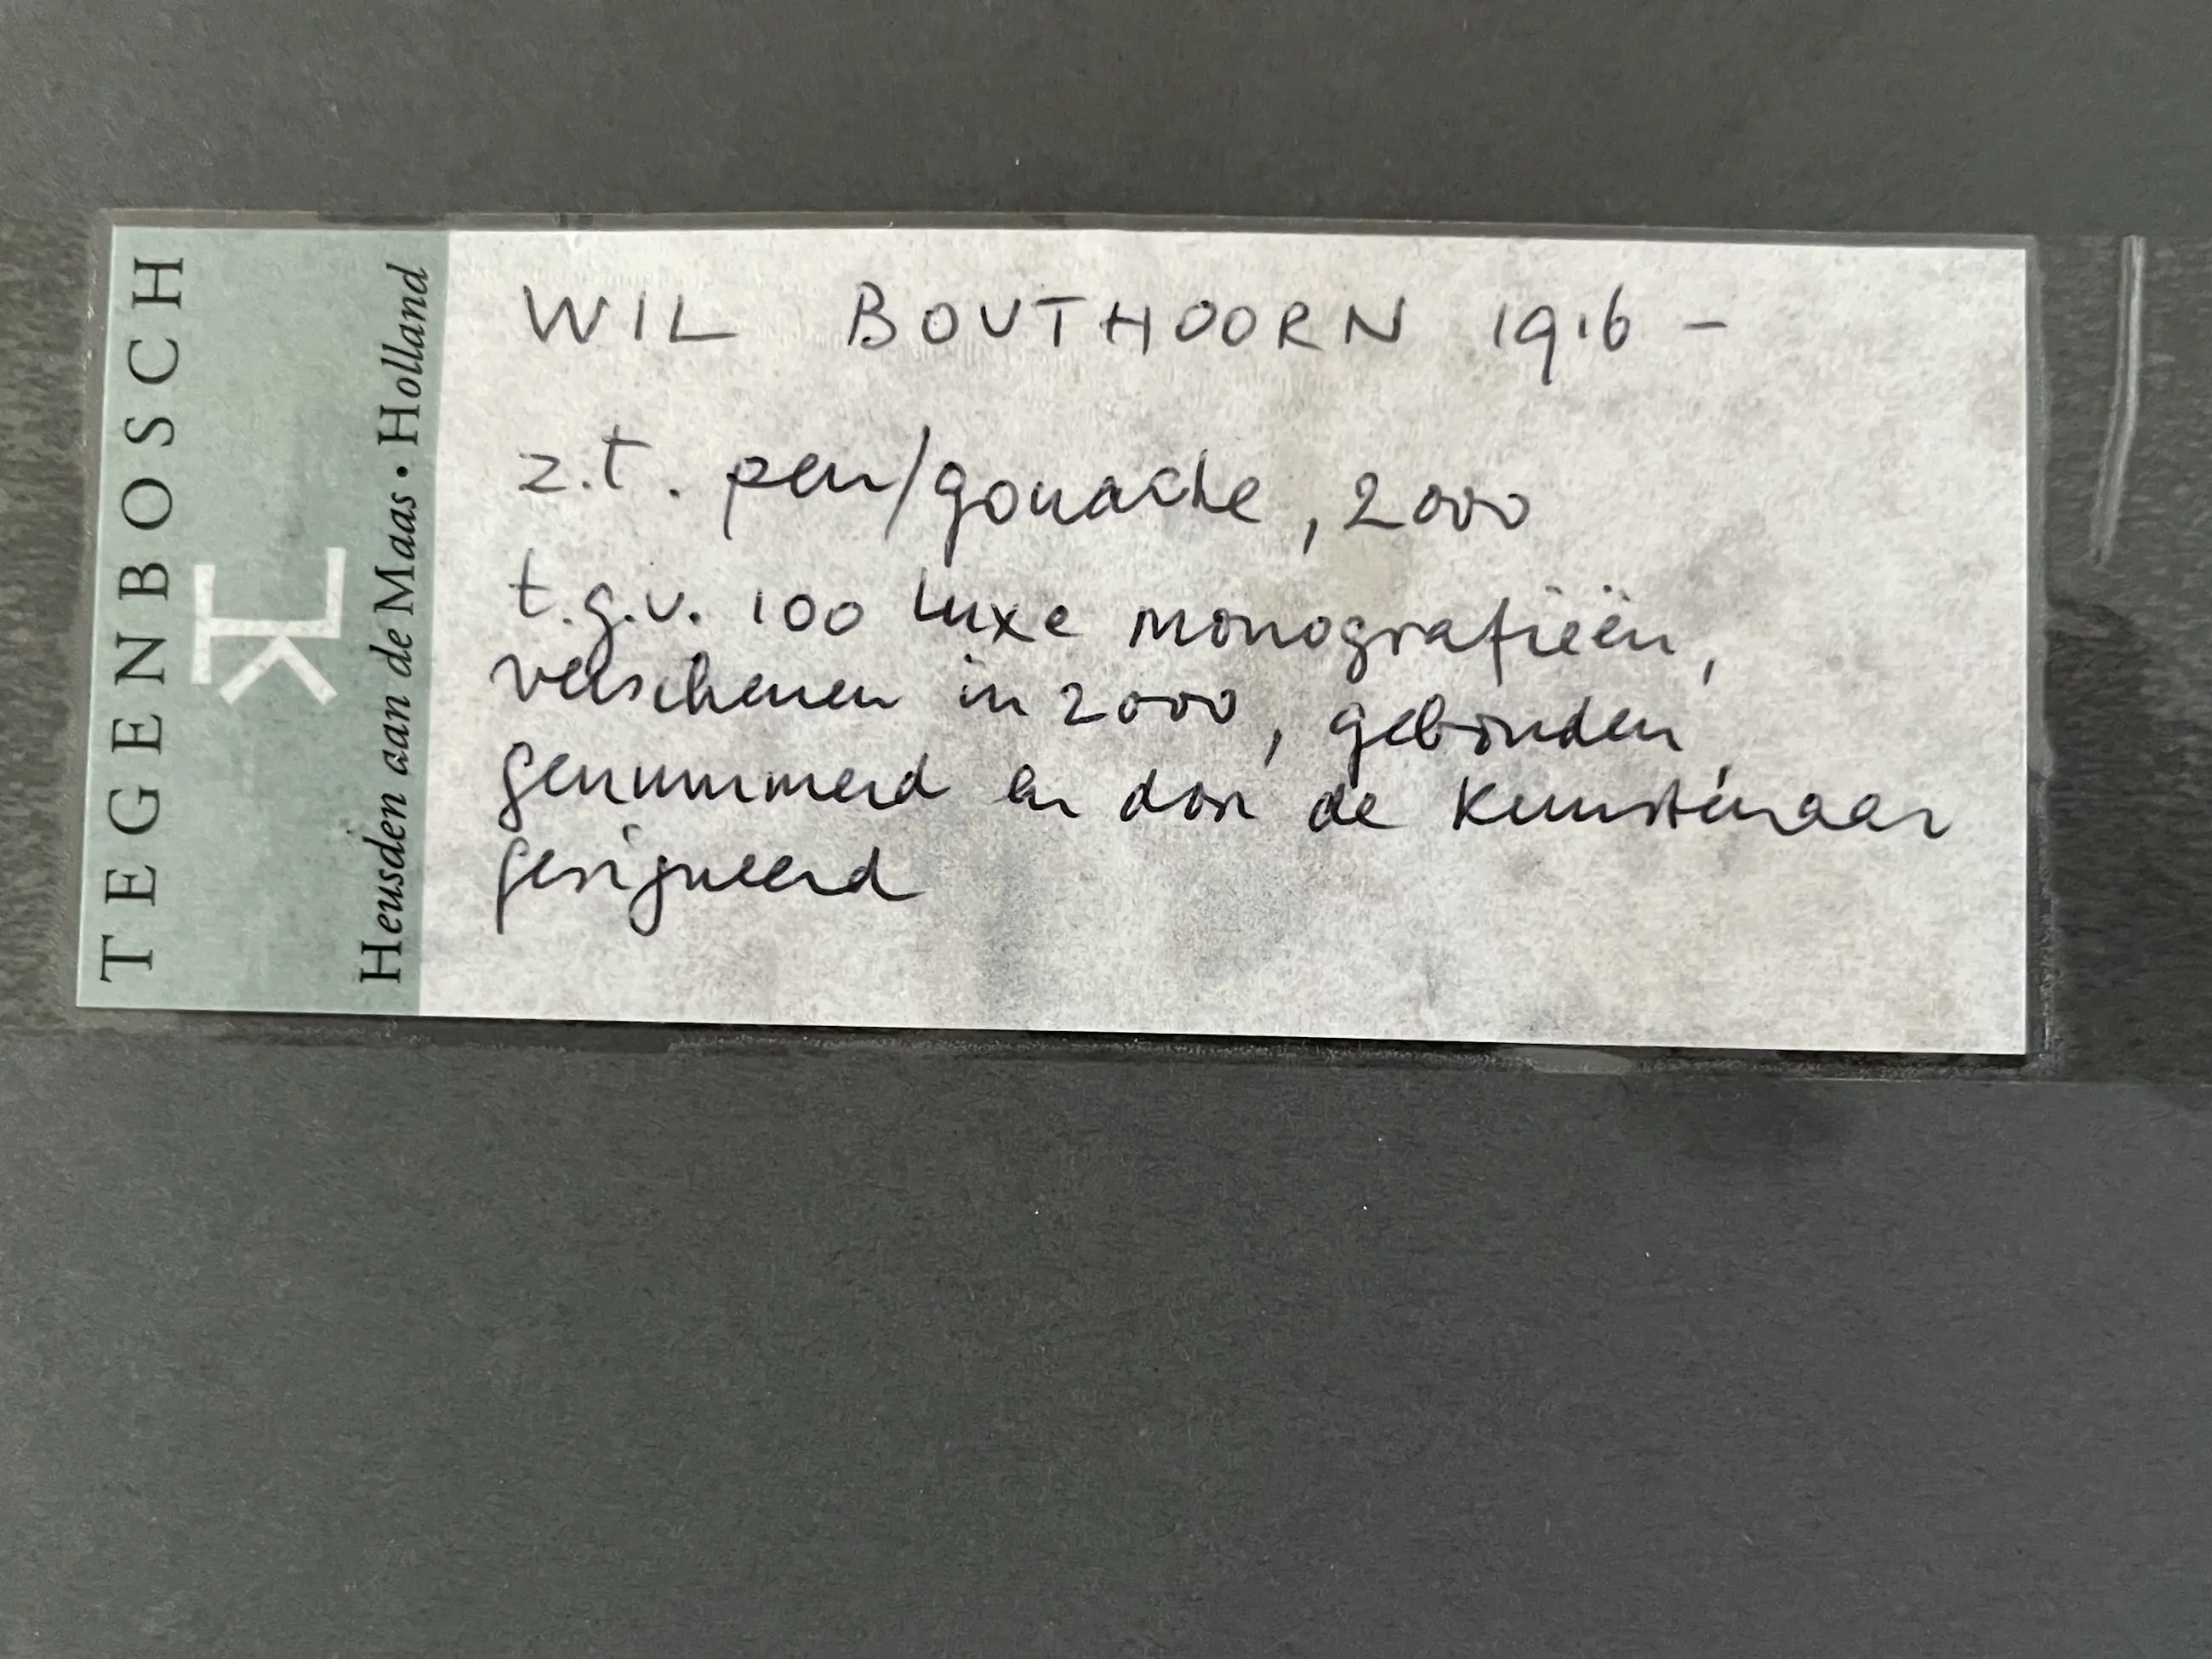 TEGENBOSCH
Heusden aan de Maas • Holland
WIL BOUTHOORN 1916 -
z.t. pen/gouache, 2000
t.g.v. 100 luxe monografieën,
verschenen in 2000, gebonden,
genummerd en door de kunstenaar
gesigneerd